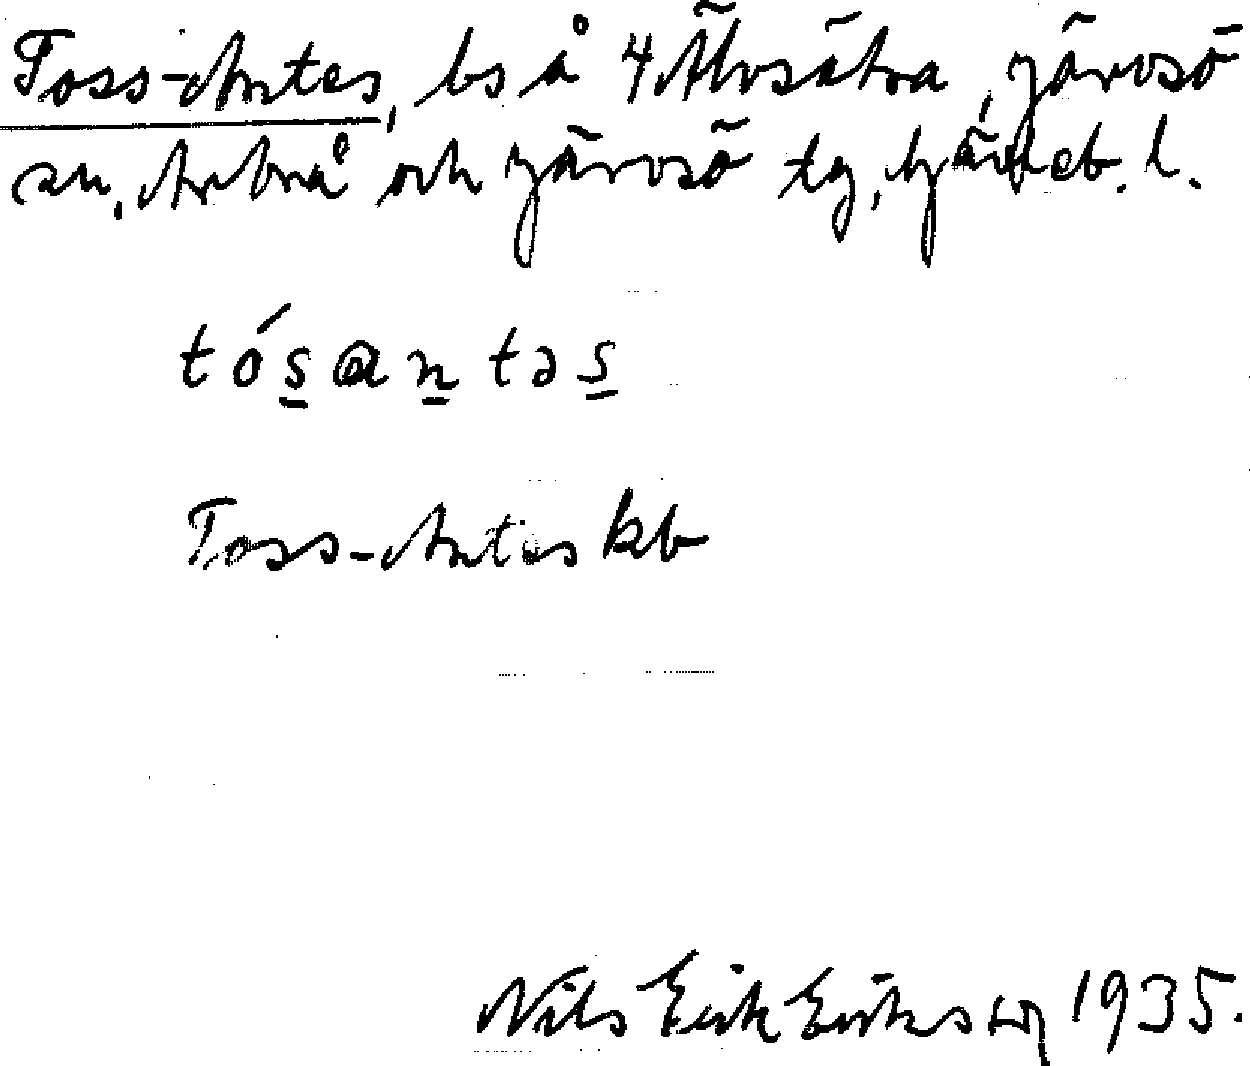 Toss-Antes, bs å 4 Älvsätra, Järvsö
sn, Arbrå och Järvsö tg, Gävleb. l.
tósantəs
Toss-Antes kb
Nils Erik Eriksson 1935.